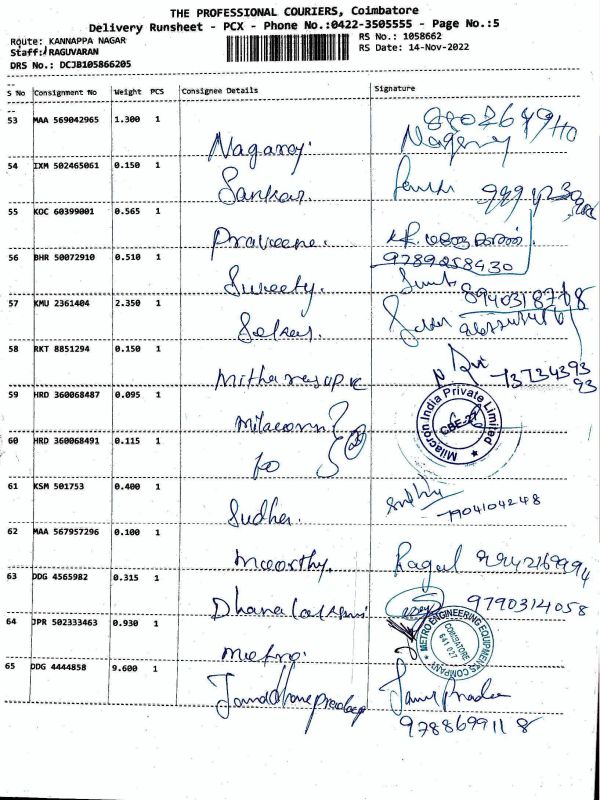 THE PROFESSIONAL COURIERS, Coimbatore
Delivery Runsheet - PCX - Phone No.:0422-3505555 - Page No.:5
Route: KANNAPPA NAGAR
RS No.: 1058662
Staff: RAGUVARAN
RS Date: 14-Nov-2022
DRS No.: DCJB105866205
S No Consignment No Weight PCS Consignee Details Signature
53 MAA 569042965 1.300 1 Nagaraj.
54 IXM 502465061 0.150 1 Sankar.
55 KOC 60399001 0.565 1 Praveena.
9789258430
56 BHR 50072910 0.510 1 Sweety.
57 KMU 2361404 2.350 1 Sekar. 8940318768
58 RKT 8851294 0.150 1
59 HRD 360068487 0.095 1 Milacron
Milacron India Private Limited
CBE-27
60 HRD 360068491 0.115 1 to
61 KSM 501753 0.400 1 Sudha. Sudha
7904104248
62 MAA 567957296 0.100 1 Moorthy. Ragul 9942169994
63 DDG 4565982 0.315 1 Dhanalakshmi 9790314058
64 JPR 502333463 0.930 1 Metro.
METRO ENGINEERING EQUIPMENTS COMPANY
COIMBATORE
641 027
65 DDG 4444858 9.600 1
9788699118